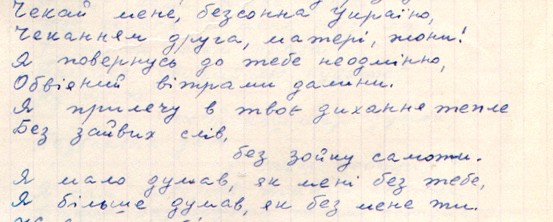 Чекай мене, безсонна Україно,
Чеканням друга, матері, жони!
Я повернусь до тебе неодмінно,
Обвіяний вітрами далини.
Я прилечу в твоє дихання тепле
Без зайвих слів,
без зойку самоти.
Я мало думав, як мені без тебе,
Я більше думав, як без мене ти.